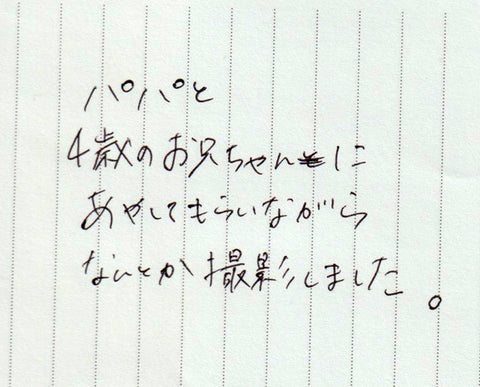 パパと
4歳のお兄ちゃんに
あやしてもらいながら
なんとか撮影しました。